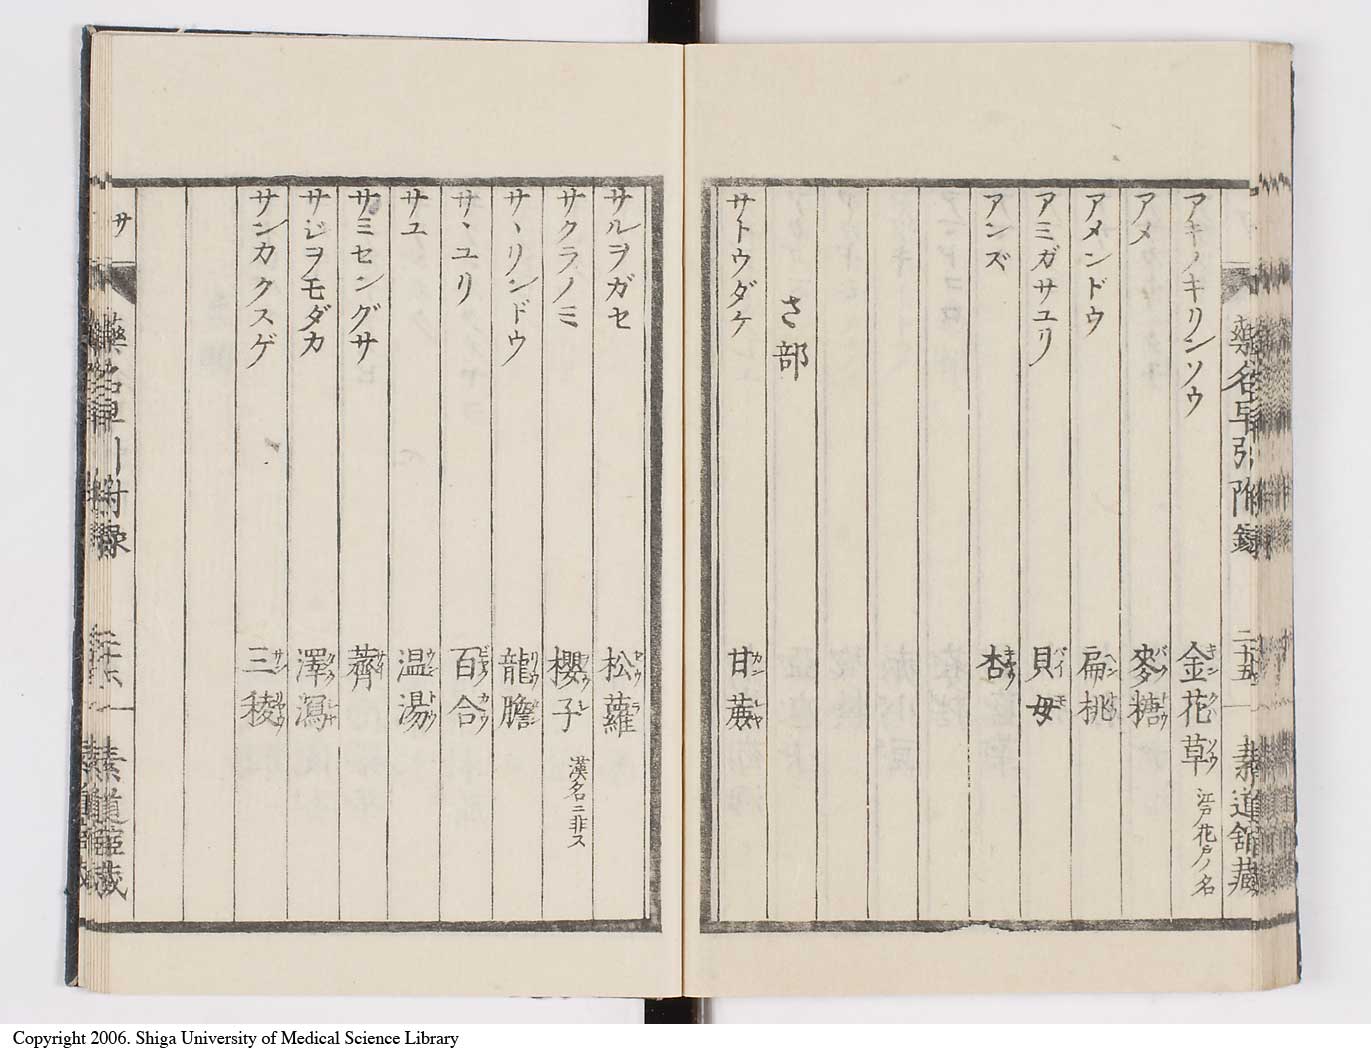 藥名早引附録 二十五 素道舘藏
アキノキリンソウ 金花草 江戸花戸ノ名
アメ 麥糖
アメンドウ 扁桃
アミガサユリ 貝母
アンズ 杏
さ部
サトウダケ 甘蔗
サルヲガセ 松蘿
サクラノミ 櫻子 漢名ニ非ス
サヽリンドウ 龍膽
サヽユリ 百合
サユ 温湯
サミセングサ 薺
サジヲモダカ 澤瀉
サンカクスゲ 三稜
サ
Copyright 2006. Shiga University of Medical Science Library